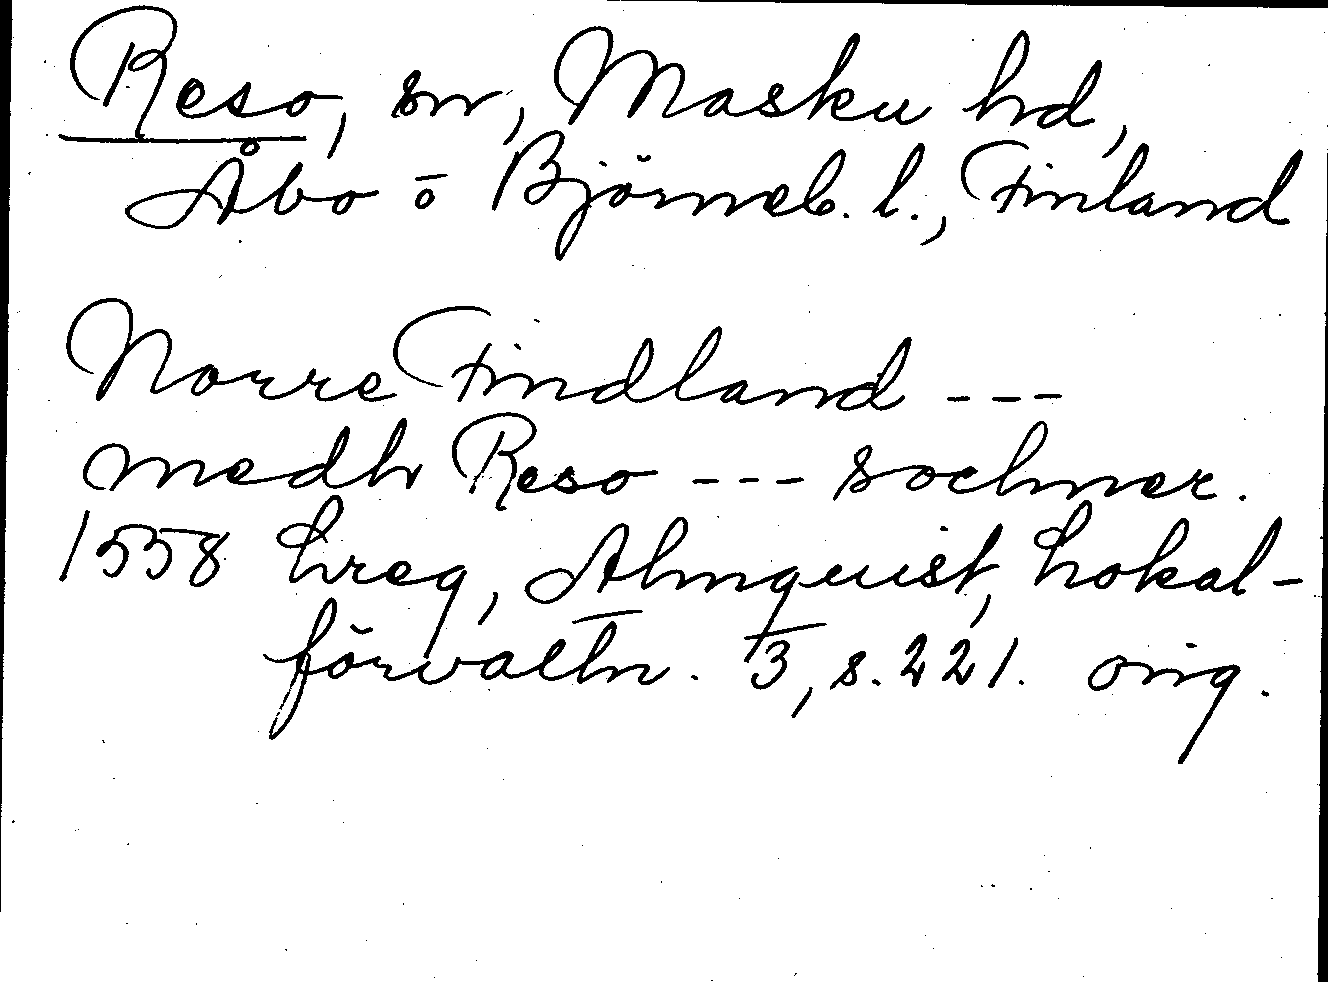 Reso, sn, Masku hd,
Åbo o Björneb. l., Finland
Norre Findland ---
medh Reso --- sochner.
1558 Lreg, Almquist, Lokal-
förvaltn. 3, s. 221. orig.